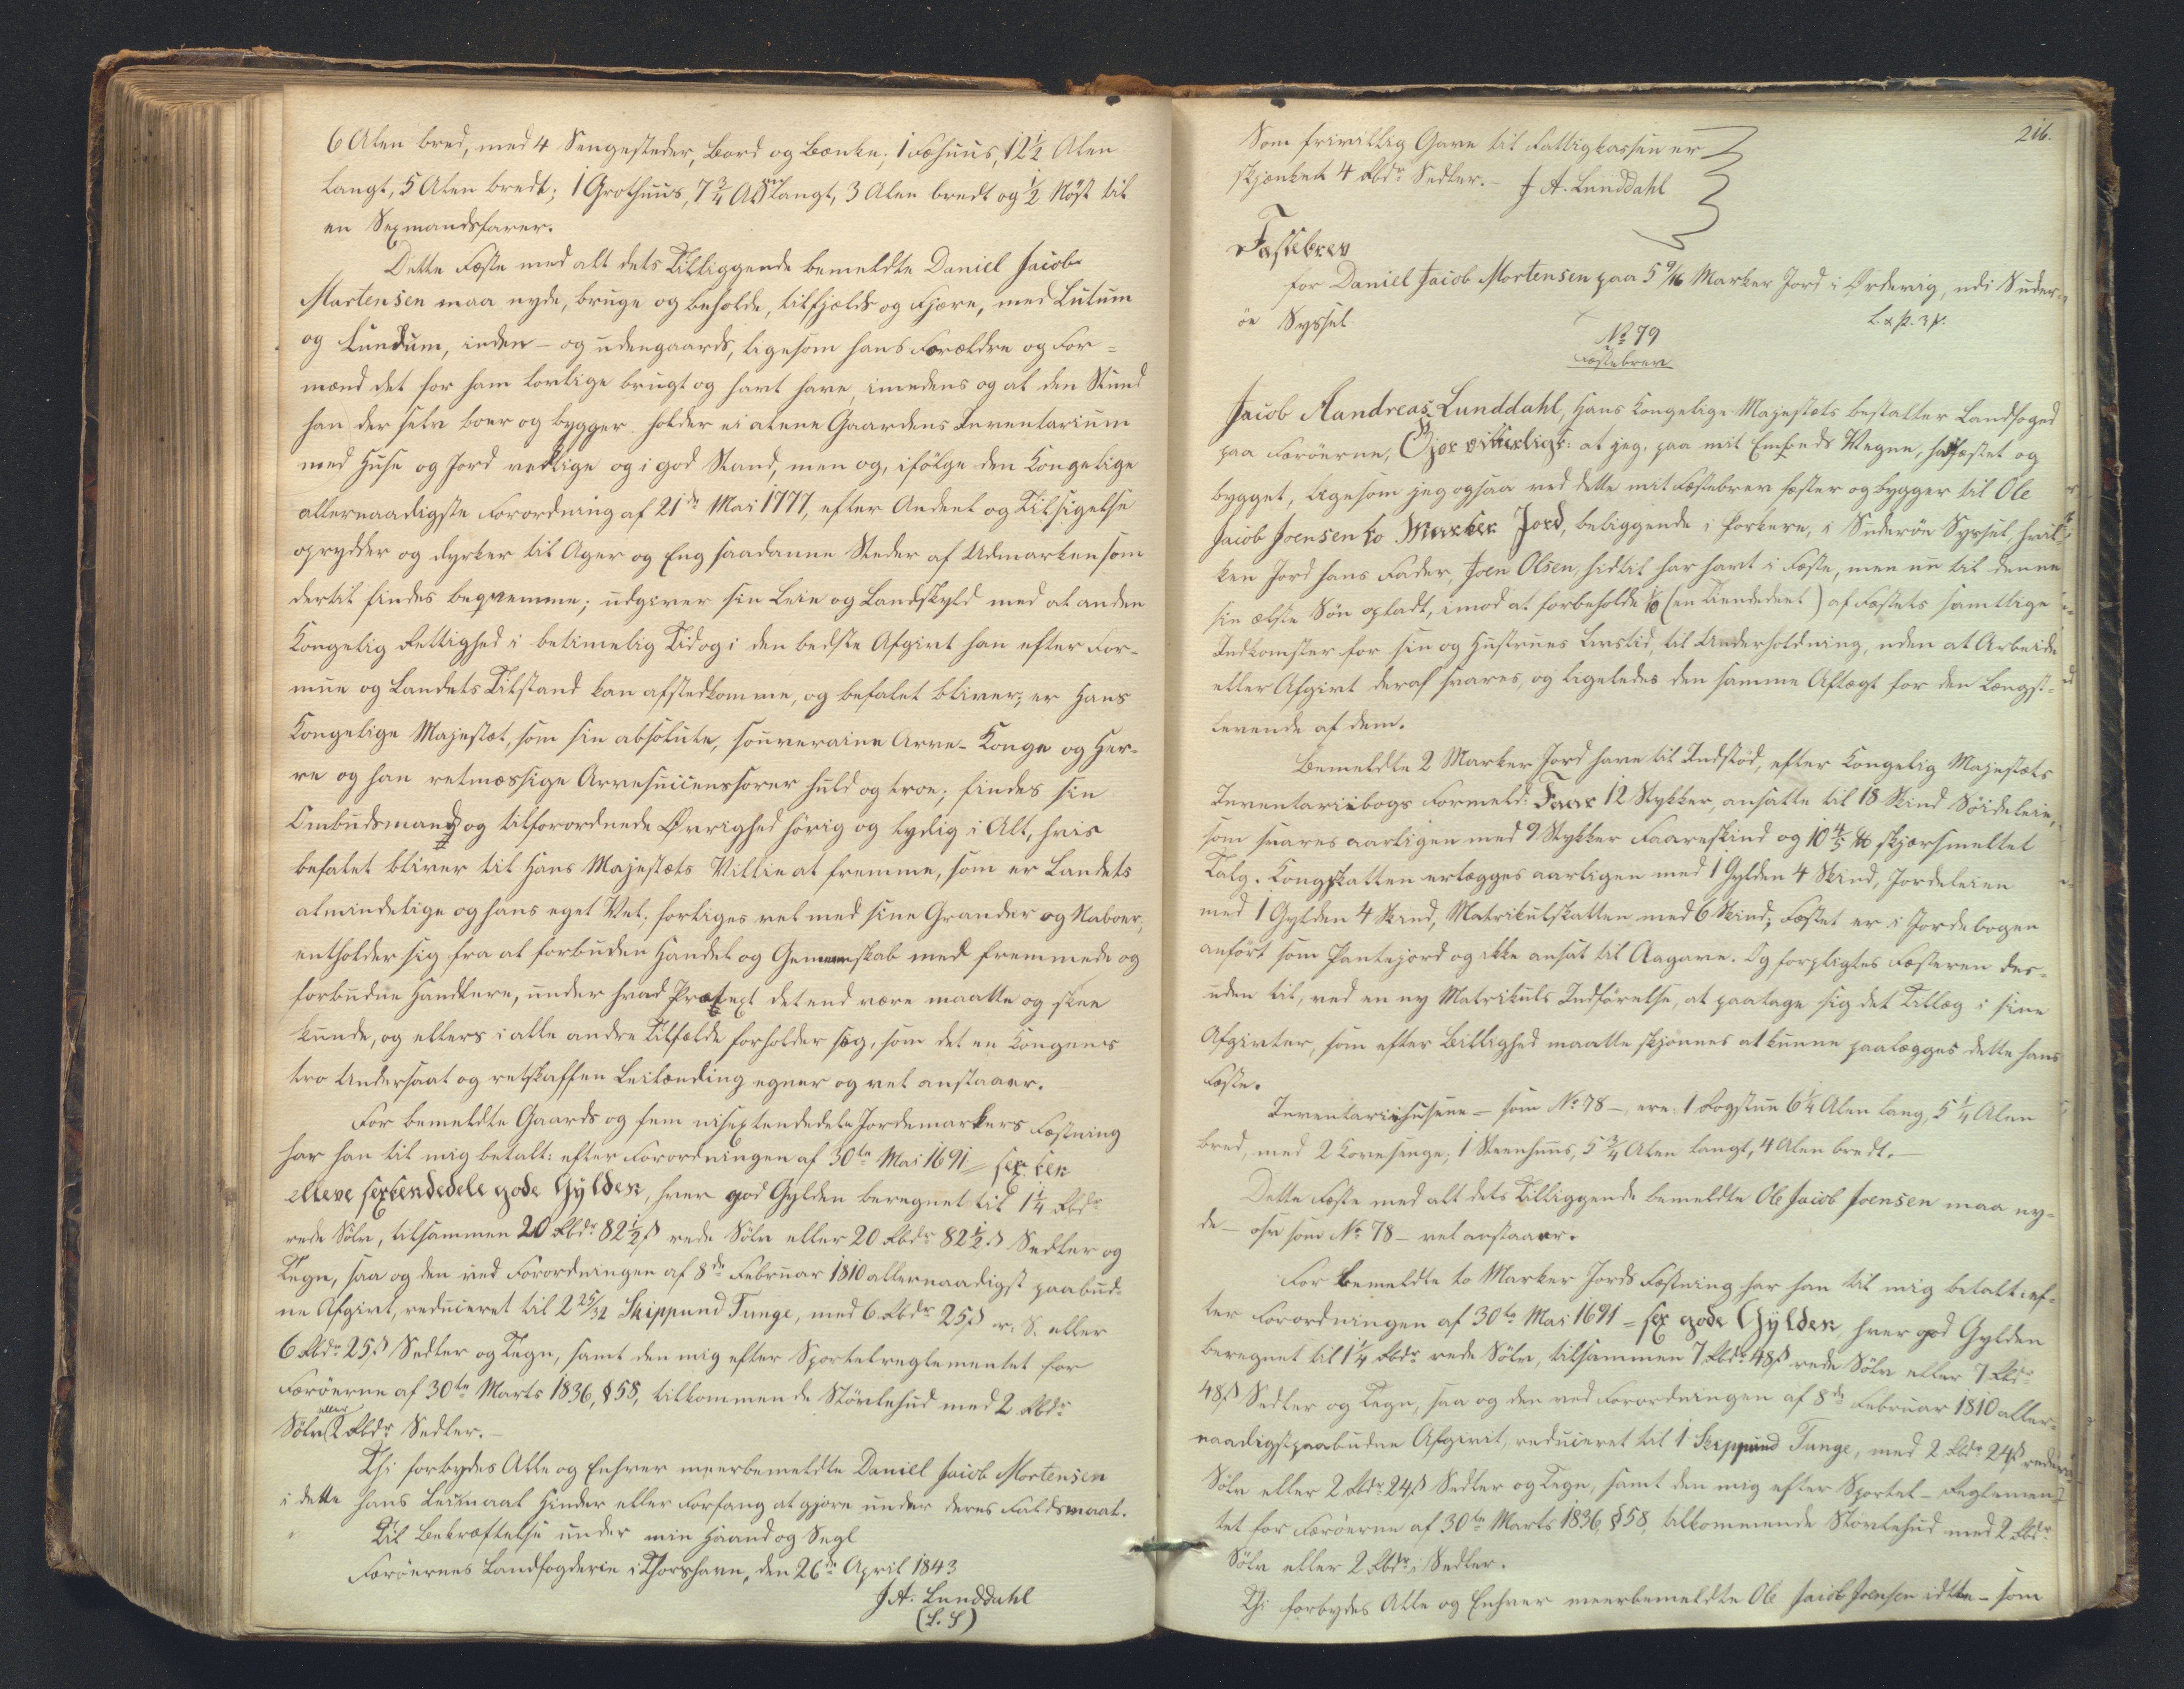 6 Alen bred, med 4 Sengesteder, Bord og Bænke; 1 Fæhuus, 12½ Alen
langt, 5 Alen bredt; 1 Grothuus, 7¾ Alen langt, 3 Alen bredt og ½ Nøst til
en Sexmandsfarer.
Dette Fæste med alt dets Tilliggende bemeldte Daniel Jacob
Mortensen maa nyde, bruge og beholde, tilfjelds og Fjære, med Lutum
og Lundum, inden- og udengaards, ligesom hans Forældre og For=
mænd det for ham lovlige brugt og havt have, imedens og al den Stund
han der selv boer og bygger, holder ei alene Gaardens Inventarium
med Huse og Jord vedlige og i god Stand, men og, ifølge den Kongelige
allernaadigste Forordning af 21de Mai 1777, efter Andeel og Tilsigelse
oprydder og dyrker til Ager og Eng saadanne Steder af Udmarken som
dertil findes beqvemme; udgiver sin Leie og Landskyld med al anden
Kongelig Rettighed i betimelig Tid og i den bedste Afgivt han efter For-
mue og Landets Tilstand kan afstedkomme, og befalet bliver; er Hans
Kongelige Majestæt, som sin absolute, souveraine Arve-Konge og Her-
re og han retmæssige Arvesuccenssorer huld og troe; findes sin
Ombudsmand og tilforordnede Øvrighed hørig og lydig i Alt, hvis
befalet bliver til Hans Majestæts Villie at fremme, som er Landets
almindelige og hans eget Vel; forliges vel med sine Grander og Naboer,
entholder sig fra al forbuden Handel og Gemeenskab med fremmede og
forbudne Handlere, under hvad Prætext det end være maatte og skee
kunde, og ellers i alle andre Tilfælde forholder sig, som det en Kongens
tro Undersaat og retskaffen Leilænding egner og vel anstaaer.
For bemeldte Gaards og fem nisextendedele Jordemarkers Fæstning
har han til mig betalt: efter Forordningen af 30te Mai 1691 = sexten
elleve sextendedele gode Gylden, hver god Gylden beregnet til 1¼ Rbdr
rede Sölv, tilsammen 20 Rbdr 82½ß rede Sölv eller 20 Rbdr 82½ß Sedler og
Tegn, saa og den ved Forordningen af 8de Februar 1810 allernaadigst paabud=
ne Afgivt, reduceret til 2 25/32 Skippund Tunge, med 6 Rbdr 25ß r. S. eller
6 Rbdr 25ß Sedler og Tegn, samt den mig efter Sportelreglementet for
Færöerne af 30te Marts 1836, §58, tilkommende Störlehud med 2 Rbdr
Sölv eller 2 Rbdr Sedler.-
Thi forbydes Alle og Enhver meerbemeldte Daniel Jacob Mortensen
i dette hans Leiemaal Hinder eller Forfang at gjøre under deres Faldsmaal.
Til Bekræftelse under min Haand og Segl
Færöernes Landfogderie i Thorshavn, den 26de April 1843
J A. Lunddahl
(L. S)
216.
Som frivillig Gave til Fattigkassen er
skjænket 4 Rbdr Sedler.- J A. Lunddahl
Fæstebrev
for Daniel Jacob Mortensen paa 5 9/16 Marker Jord i Ørdevig, udi Suder-
øe Syssel
No 79
Fæstebrev
Jacob Aandreas Lunddahl, Hans Kongelige Majestæts bestalter Landfoged
paa Færöerne, Gjør vitterligt: at jeg, paa mit Embeds Vegne, har fæstet og
bygget, ligesom jeg ogsaa ved dette mit Fæstebrev fæster og bygger til Ole
Jacob Joensen to Marker Jord, beliggende i Porkere, i Suderöe Syssel, hvil=
ken Jord hans Fader, Joen Olsen, hidtil har havt i Fæste, men nu til denne
sin ælste Sön opladt, imod at forbeholde 1/10 (en Tiendedeel) af Fæstets samtlige
Indkomster for sin og Hustrues Livstid, til Underholdning, uden at Arbeide
eller Afgivt deraf svares, og ligeledes den samme Aftægt for den Længst-
levende af dem.
Bemeldte 2 Marker Jord have til Indstöd, efter Kongelig Majestæts
Inventariibogs Formeld: Faar 12 Stykker, ansatte til 18 Skind Söideleie,
som svares aarligen med 9 Stykker Faareskind og 10 4/5 ℔ skjærsmeltet
Talg. Kongskatten erlægges aarligen med 1 Gylden 4 Skind, Jordeleien
med 1 Gylden 4 Skind, Matrikulskatten med 6 Skind; Fæstet er i Jordebogen
anført som Pantejord og ikke ansat til Aagave. Og forpligtes Fæsteren des-
uden til, ved en ny Matrikuls Indførelse, at paatage sig det Tillæg i sine
Afgivter, som efter Billighed maatte skjønnes at kunne paalægges dette hans
Fæste.
Inventariihusene - som No 78 -, ere: 1 Rogstue 6¼ Alen lang, 5¼ Alen
bred, med 2 Kovesenge; 1 Steenhuus, 5¾ Alen langt, 4 Alen bredt.-
Dette Fæste med alt dets Tilliggende bemeldte Ole Jacob Joensen maa ny-
de - osv som No 78 - vel anstaaer.
For bemeldte to Marker Jords Fæstning har han til mig betalt: ef-
ter Forordningen af 30te Mai 1691 = sex gode Gylden, hver god Gylden
beregnet til 1¼ Rbdr rede Sölv, tilsammen 7 Rbdr 48ß rede Sölv eller 7 Rbdr
48ß Sedler og Tegn, saa og den ved Forordningen af 8de Februar 1810 aller-
naadigst paabudne Afgivt, reduceret til 1 Skippund Tunge, med 2 Rbdr 24ß rede
Sölv eller 2 Rbdr 24ß Sedler og Tegn, samt den mig efter Sportel-Reglemen-
tet for Færöerne af 30te Marts 1836, §58, tilkommende Störlehud med 2 Rbdr
Sölv eller 2 Rbdr i Sedler.
Thi forbydes Alle og Enhver meerbemeldte Ole Jacob Joensen i dette - som